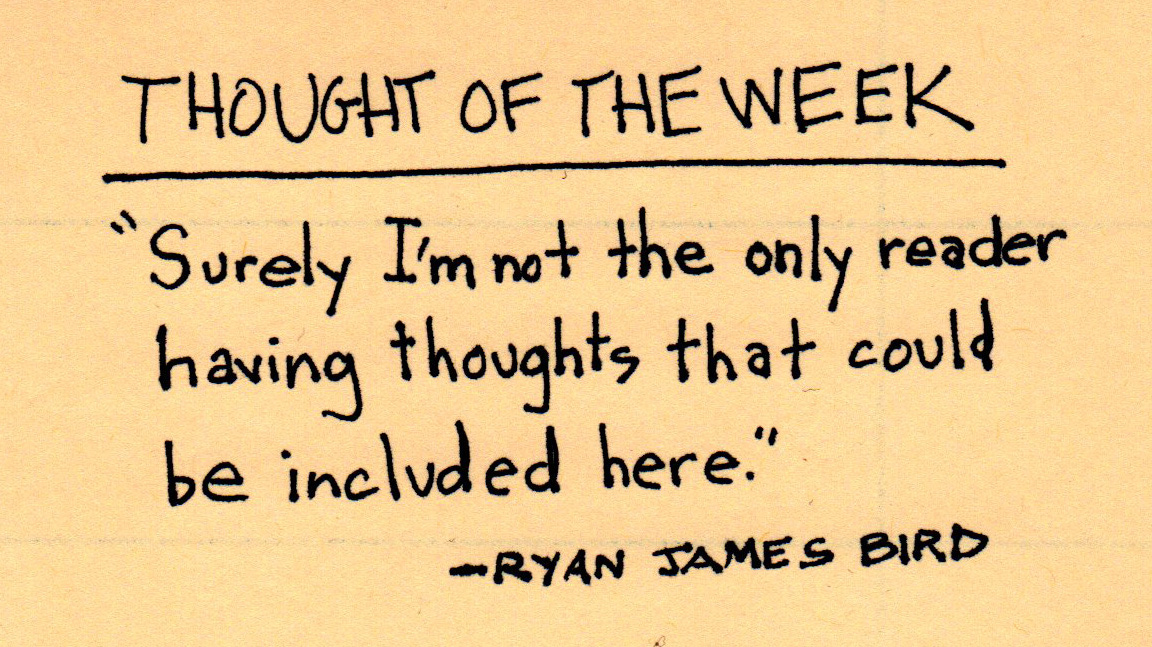 THOUGHT OF THE WEEK
"Surely I'm not the only reader
having thoughts that could
be included here."
—RYAN JAMES BIRD